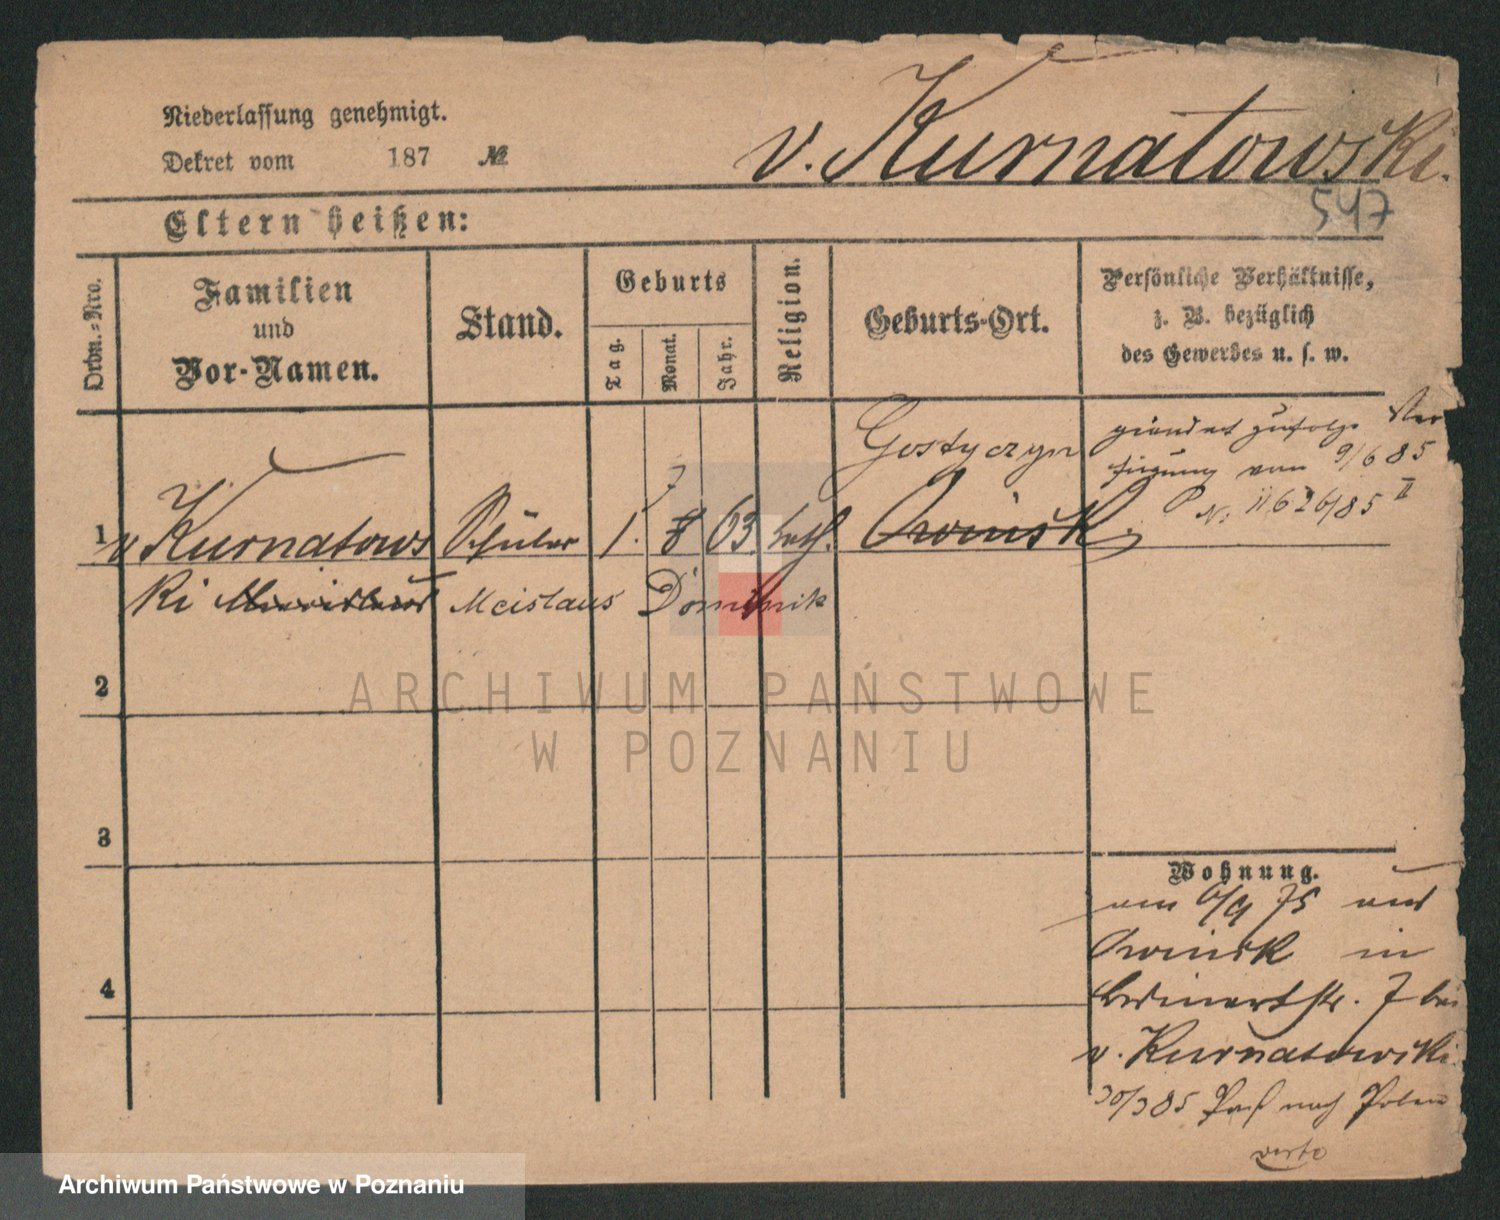 Niederlassung genehmigt.
Dekret vom 187 №
v. Kurnatowski.
547
Eltern heißen:
Ordn.-Nro.
Familien
und
Vor-Namen.
Stand.
Geburts
Tag.
Monat.
Jahr.
Religion.
Geburts-Ort.
Persönliche Verhältnisse,
z. B. bezüglich
des Gewerbes u. s. w.
Gostyczyn
geändert zufolge Ver
fügung vom 9/6 85
N: 11626/85 II
1 v Kurnatows Schüler 1. 8 63. kath. Owinsk
ki Meislaus Dominik
2
3
4
Wohnung.
am 6/9 75 aus
Owinsk in
str. 7 bei
v. Kurnatowski
30/3 85 Paß nach Polen
verte
ARCHIWUM PAŃSTWOWE
W POZNANIU
Archiwum Państwowe w Poznaniu